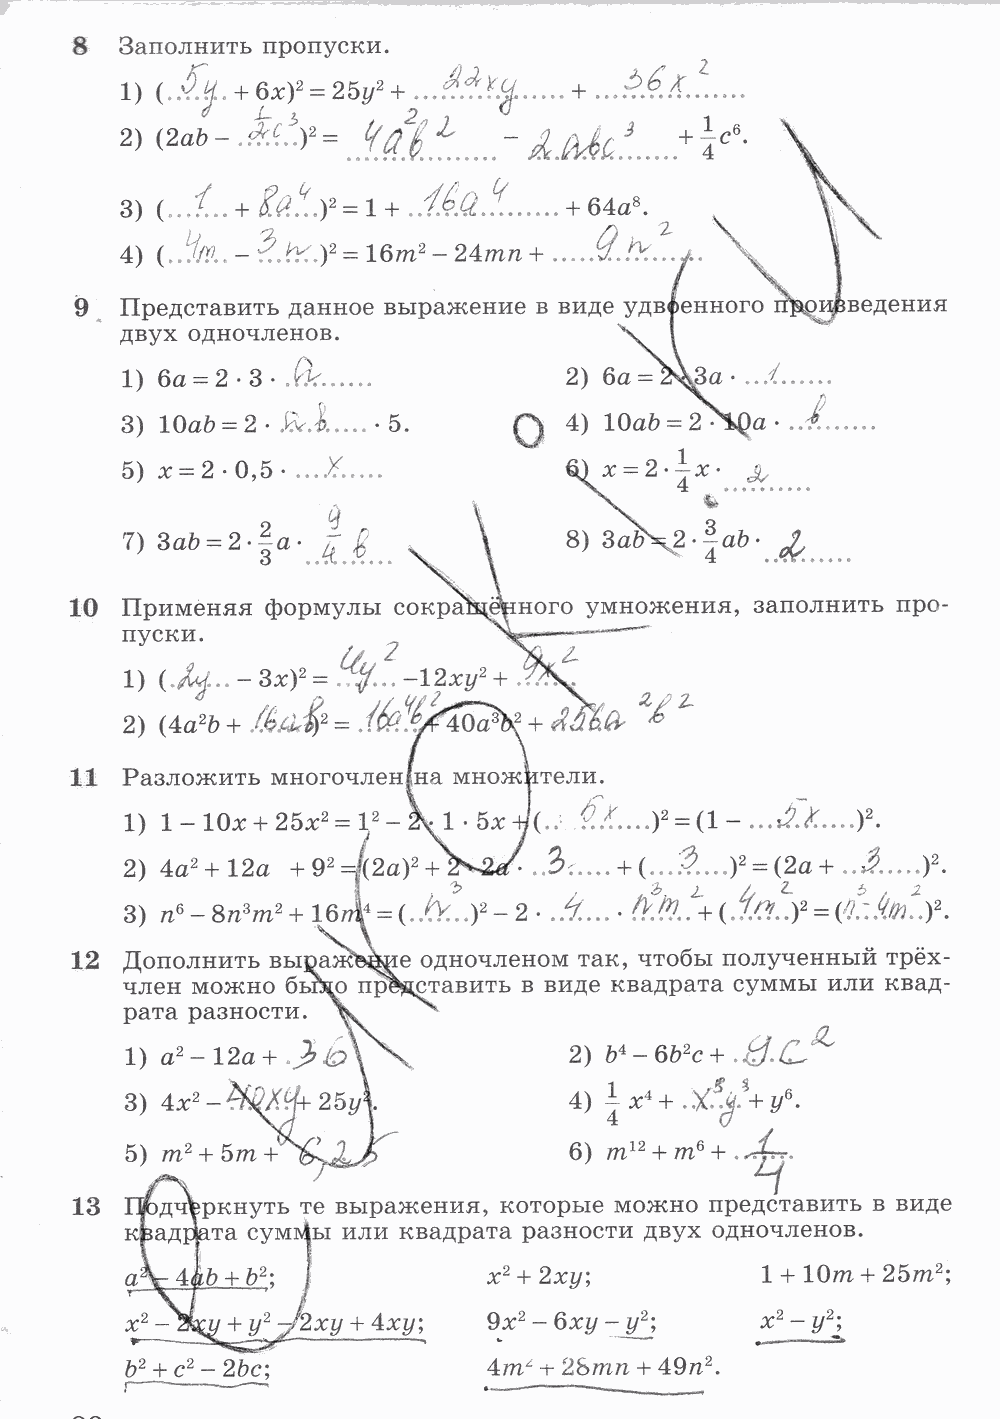 8 Заполнить пропуски.
1) (5y + 6x)² = 25y² + 22xy + 36x²
2) (2ab − ½c³)² = 4a²b² − 2abc³ + 1/4 c⁶.
3) (1 + 8a⁴)² = 1 + 16a⁴ + 64a⁸.
4) (4m − 3n)² = 16m² − 24mn + 9n²
9 Представить данное выражение в виде удвоенного произведения
двух одночленов.
1) 6a = 2 · 3 · a
2) 6a = 2 · 3a · 1
3) 10ab = 2 · ab · 5.
4) 10ab = 2 · 10a · b
5) x = 2 · 0,5 · x
6) x = 2 · 1/4 x · 2
7) 3ab = 2 · 2/3 a · 9/4 b
8) 3ab = 2 · 3/4 ab · 2
10 Применяя формулы сокращённого умножения, заполнить про-
пуски.
1) (2y − 3x)² = 4y² −12xy² + 9x²
2) (4a²b + 16ab)² = 16a⁴b² + 40a³b² + 256a²b²
11 Разложить многочлен на множители.
1) 1 − 10x + 25x² = 1² − 2 · 1 · 5x + (5x)² = (1 − 5x)².
2) 4a² + 12a + 9² = (2a)² + 2 · 2a · 3 + (3)² = (2a + 3)².
3) n⁶ − 8n³m² + 16m⁴ = (n³)² − 2 · 4 · n³m² + (4m²)² = (n³ − 4m²)².
12 Дополнить выражение одночленом так, чтобы полученный трёх-
член можно было представить в виде квадрата суммы или квад-
рата разности.
1) a² − 12a + 36
2) b⁴ − 6b²c + 9c²
3) 4x² − 40xy + 25y².
4) 1/4 x⁴ + x³y³ + y⁶.
5) m² + 5m + 6,25
6) m¹² + m⁶ + 1/4
13 Подчеркнуть те выражения, которые можно представить в виде
квадрата суммы или квадрата разности двух одночленов.
a² − 4ab + b²; x² + 2xy; 1 + 10m + 25m²;
x² − 2xy + y² − 2xy + 4xy; 9x² − 6xy − y²; x² − y²;
b² + c² − 2bc; 4m² + 28mn + 49n².